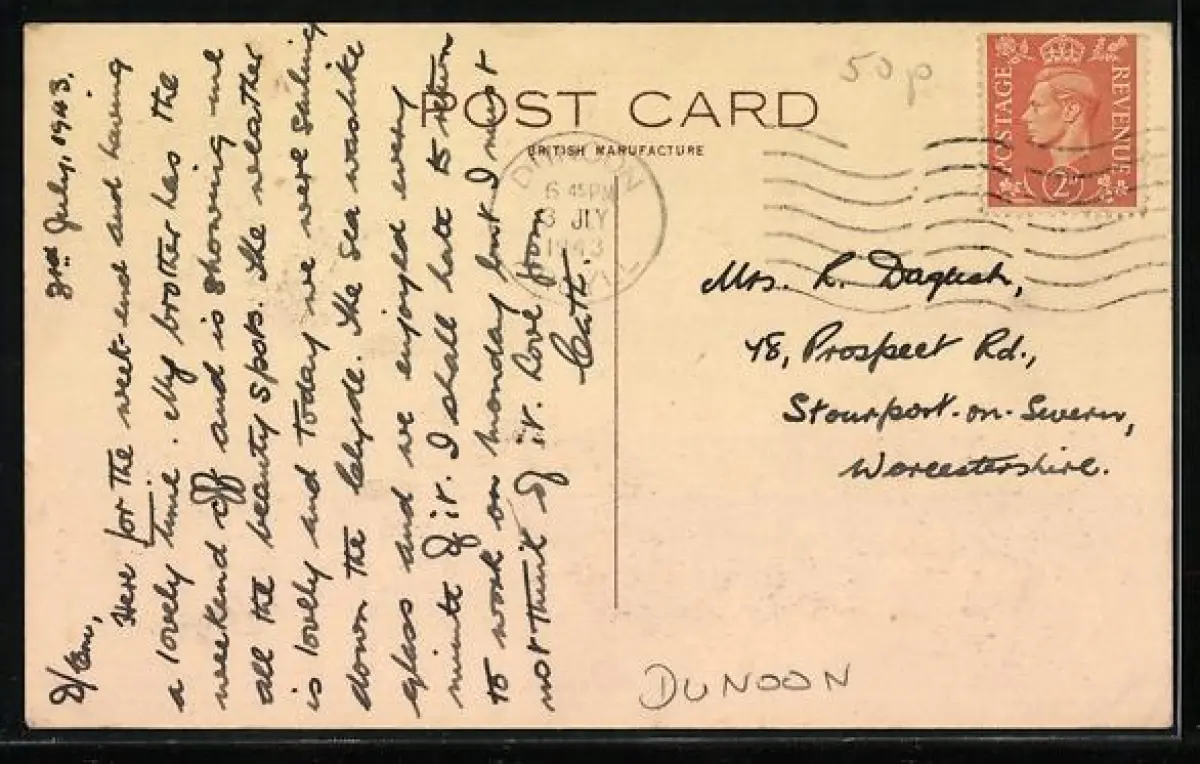 3rd July, 1943.
D/
Here for the week-end and having
a lovely time. My brother has the
weekend off and is showing me
all the beauty spots. The weather
is lovely and today we were sailing
down the Clyde. The sea was like
glass and we enjoyed every
minute of it. I shall hate to return
to work on monday but I must
not think of it. Love from
Cath.
POST CARD
BRITISH MANUFACTURE
50p
POSTAGE REVENUE
2D
DUNOON
6 45PM
3 JLY
1943
Mrs.
48, Prospect Rd.,
Stourport-on-Severn,
Worcestershire.
DUNOON